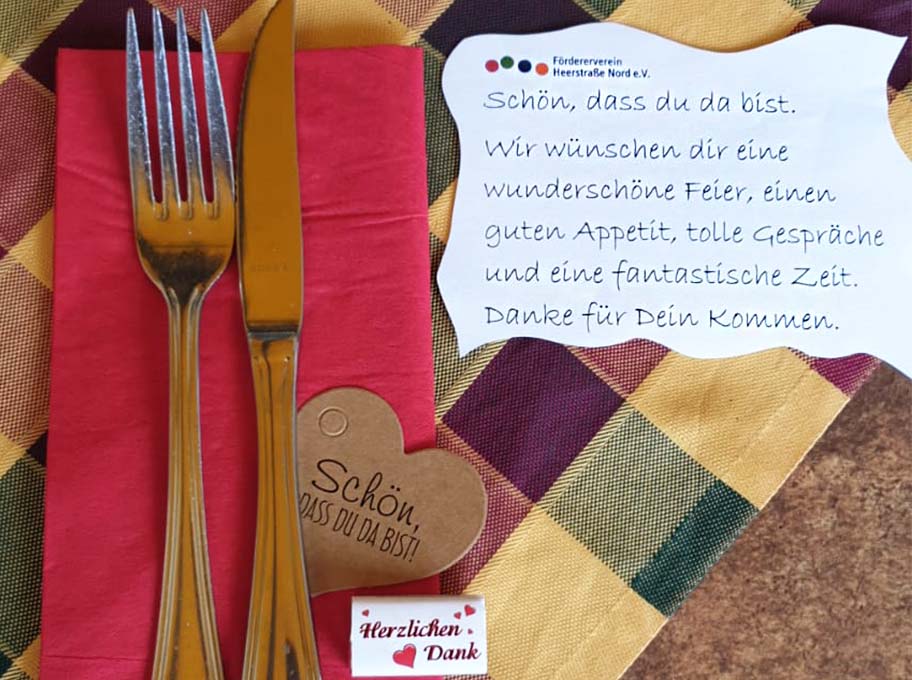 Fördererverein
Heerstraße Nord e.V.
Schön, dass du da bist.
Wir wünschen dir eine
wunderschöne Feier, einen
guten Appetit, tolle Gespräche
und eine fantastische Zeit.
Danke für Dein Kommen.
Schön,
DASS DU DA BIST!
Herzlichen
Dank